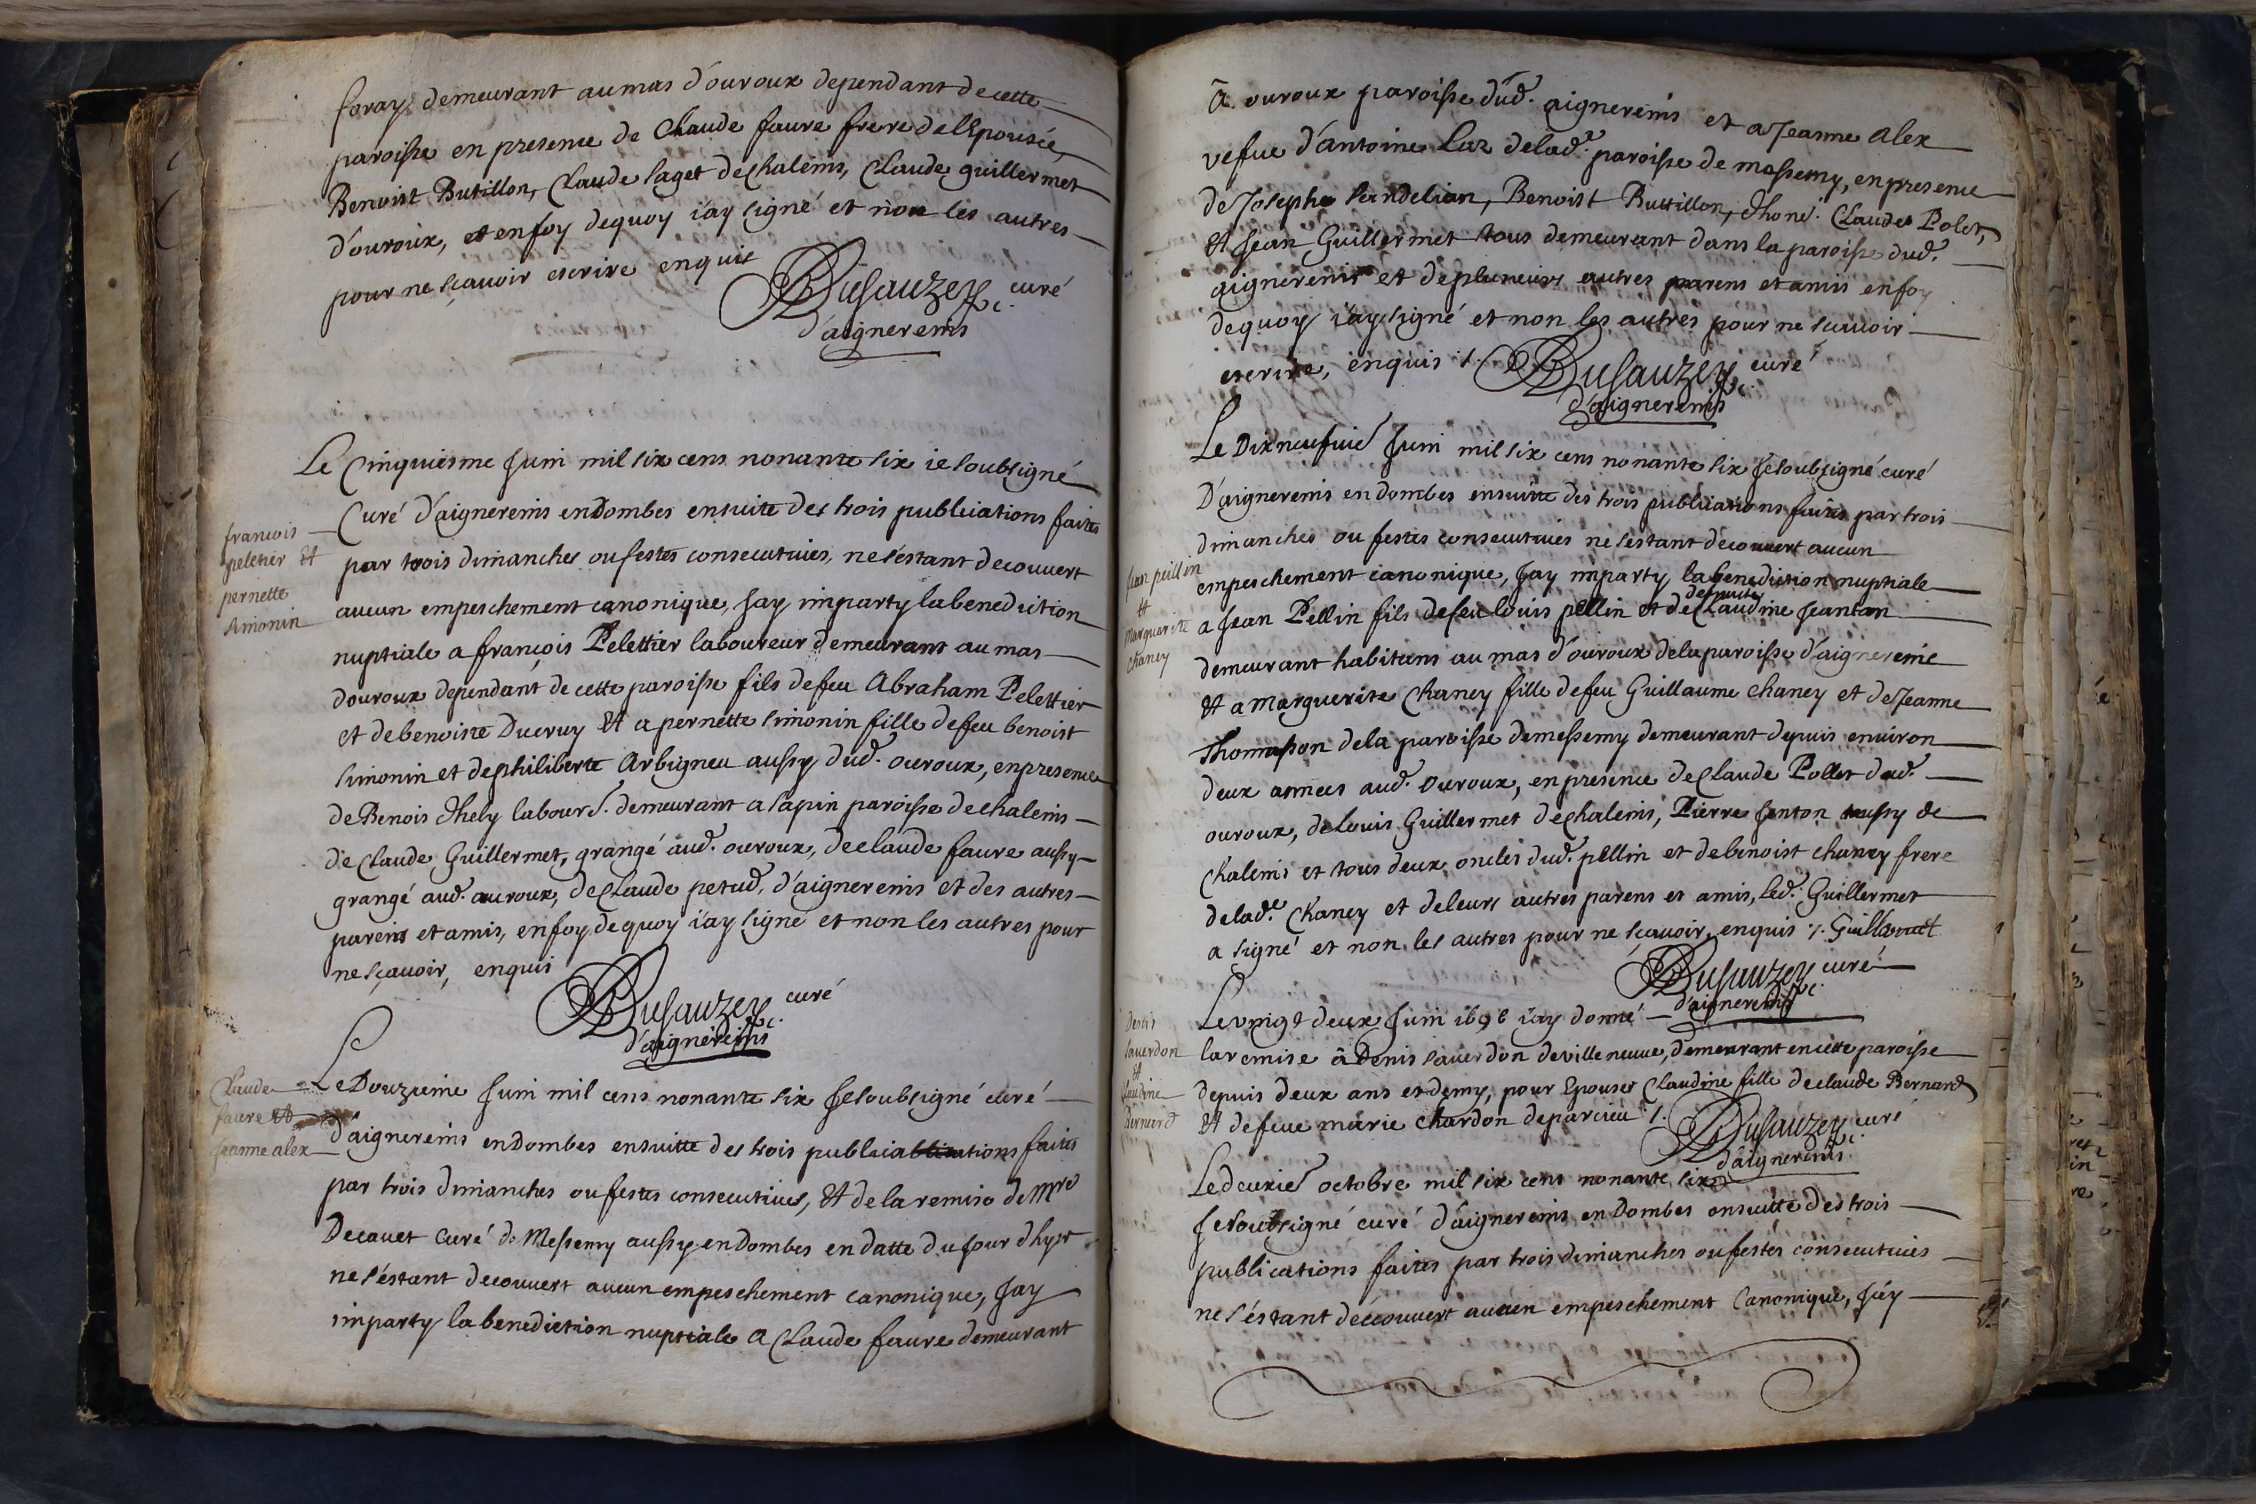 foray, demeurant au mas d'ouroux dependant de cette
paroisse en presence de Claude faure frere de l'Epousée,
Benoist Butillon, Claude laget de chaleins, Claude guillermet
d'ouroux, et en foy dequoy i'ay signé et non les autres
pour ne sçavoir escrire enquis
Dusauzey curé
d'aignereins
Le Cinquiesme Juin mil six cens nonante six ie soubsigné
Curé d'aignereins en Dombes ensuite des trois publications faites
francois
peletier Et
pernette
simonin
par trois dimanches ou festes consecutives, ne s'estant decouvert
aucun empeschement canonique, Jay imparty la benediction
nuptiale a françois Pelettier laboureur demeurant au mas
douroux dependant de cette paroisse fils de feu Abraham Pelettier
et de benoiste Ducruy Et a pernette simonin fille de feu benoist
simonin et de philiberte Arbigneu aussy dud. ouroux, en presence
de Benois Thely labour. demeurant a sapin paroisse de chaleins
de Claude Guillermet, grangé aud. ouroux, de claude faure aussy
grangé aud. auroux, de Claude petud, d'aignereins et des autres
parens et amis, en foy dequoy i'ay signé et non les autres pour
ne sçavoir, enquis
Dusauzey curé
d'aignereins
Claude
faure Et
Jeanne alex
Le Douzieme Juin mil cens nonante six Je soubsigné curé
d'aignereins en Dombes ensuitte des trois publications faites
par trois dimanches ou festes consecutives, Et de la remise de Mre
Decavet Curé de Messemy aussy en Dombes en datte du jour d'hyer
ne s'éstant decouvert aucun empeschement canonique, Jay
imparty la benediction nuptiale a Claude faure demeurant
a ouroux paroisse dud. aignereins et a Jeanne alex
vefue d'antoine Laz de lad. paroisse de messemy, en presence
de Josephe sandelian, Benoist Buttillon, Claude Polet,
Et Jean Guillermet tous demeurant dans la paroisse dud.
aignereins et de plusieurs autres parens et amis en foy
dequoy i'ay signé et non les autres pour ne scavoir
escrire, enquis /.
Dusauzey curé
d'aignereins
Le Dixneufvie Juin mil six cens nonante six Je soubsigné curé
D'aignereins en dombes ensuitte des trois publications faites par trois
dimanches ou festes consecutives ne s'estant decouvert aucun
Jean pellin
et
Marguerite
chaney
empeschement canonique, Jay imparty la benediction nuptiale
a Jean Pellin fils de feu louis pellin et de Claudine Jeanton
demeurant habitans au mas d'ouroux de la paroisse d'aignereins
Et a Marguerite Chaney fille de feu Guillaume chaney et de Jeanne
Thomasson de la paroisse de messemy demeurant depuis environ
deux années aud. ouroux, en presence de Claude Pollet dud.
ouroux, de Louis Guillermet de chaleins, Pierre Janton aussy de
Chaleins et tous deux oncles dud. pellin et de benoist chaney frere
de lad. Chaney et de leurs autres parens et amis, led. Guillermet
a signé et non les autres pour ne sçavoir, enquis /. Guillermet
Dusauzey curé
d'aignereins
Denis
saverdon
Et
Claudine
Bernard
Le vingt deux Juin 1696 i'ay donné
la remise à Denis saverdon de villeneuve, demeurant en cette paroisse
depuis deux ans et demy, pour Epouser Claudine fille de claude Bernard
Et de feue marie chardon de parcieu /.
Dusauzey curé
d'aignereins
Le deuxie octobre mil six cens nonante six
Je soubsigné curé d'aignereins en Dombes ensuitte des trois
publications faites par trois dimanches ou festes consecutives
ne s'éstant deccouvert aucun empeschement Canonique, J'ey